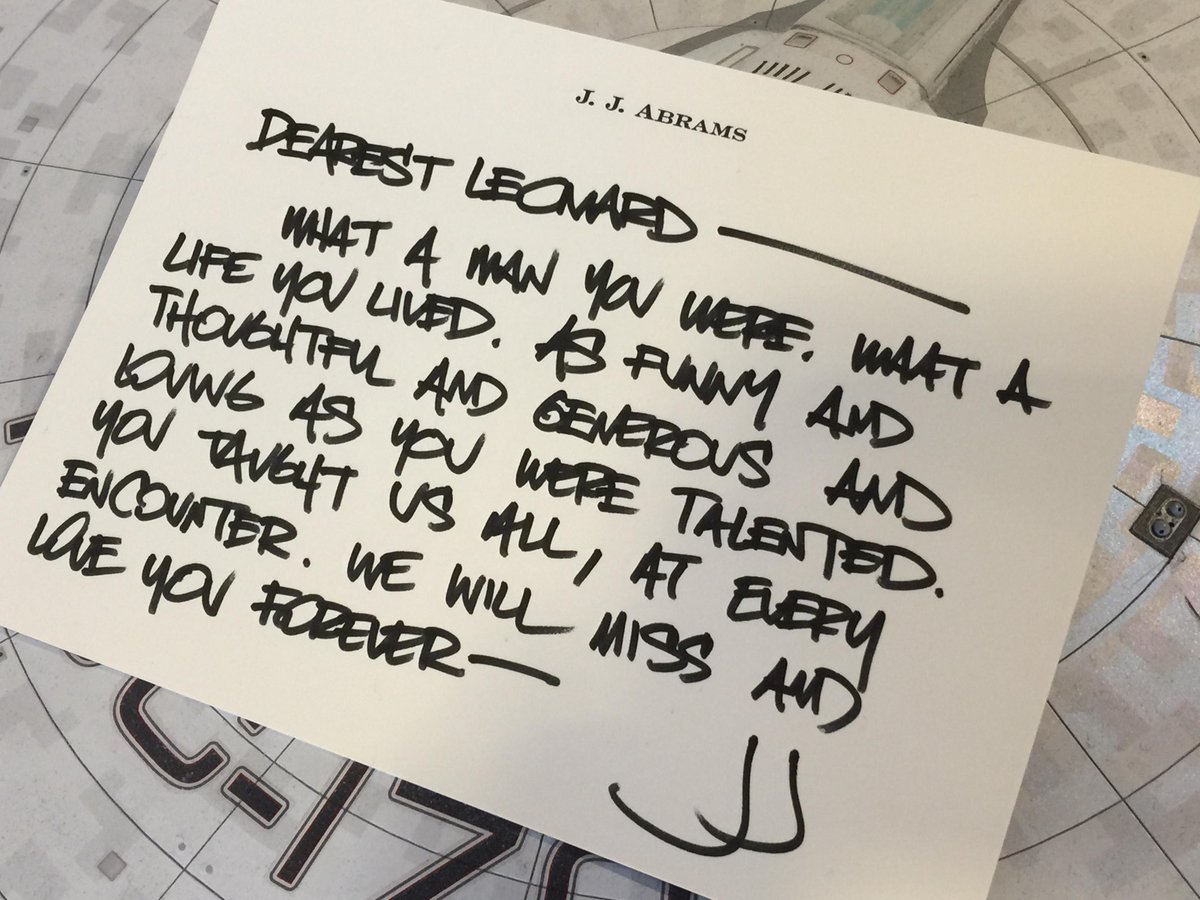 J. J. ABRAMS
DEAREST LEONARD —
WHAT A MAN YOU WERE. WHAT A
LIFE YOU LIVED. AS FUNNY AND
THOUGHTFUL AND GENEROUS AND
LOVING AS YOU WERE TALENTED.
YOU TAUGHT US ALL, AT EVERY
ENCOUNTER. WE WILL MISS AND
LOVE YOU FOREVER —
JJ
C-170